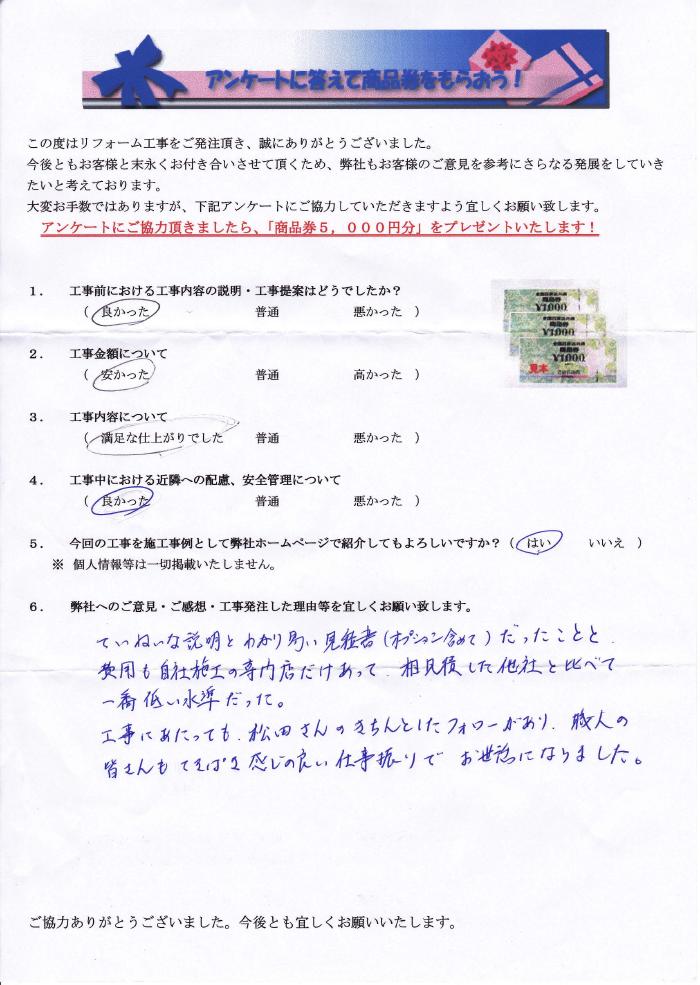 アンケートに答えて商品券をもらおう！
この度はリフォーム工事をご発注頂き、誠にありがとうございました。
今後ともお客様と末永くお付き合いさせて頂くため、弊社もお客様のご意見を参考にさらなる発展をしていき
たいと考えております。
大変お手数ではありますが、下記アンケートにご協力していただきますよう宜しくお願い致します。
アンケートにご協力頂きましたら、「商品券５，０００円分」をプレゼントいたします！
１． 工事前における工事内容の説明・工事提案はどうでしたか？
（ 良かった 普通 悪かった ）
商品券
¥1,000
¥1,000
商品券
¥1,000
見本
２． 工事金額について
（ 安かった 普通 高かった ）
３． 工事内容について
（ 満足な仕上がりでした 普通 悪かった ）
４． 工事中における近隣への配慮、安全管理について
（ 良かった 普通 悪かった ）
５． 今回の工事を施工事例として弊社ホームページで紹介してもよろしいですか？（ はい いいえ ）
※ 個人情報等は一切掲載いたしません。
６． 弊社へのご意見・ご感想・工事発注した理由等を宜しくお願い致します。
ていねいな説明とわかり易い見積書（オプション含めて）だったことと、
費用も自社施工の専門店だけあって、相見積した他社と比べて
一番低い水準だった。
工事にあたっても、松田さんのきちんとしたフォローがあり、職人の
皆さんもてきぱき感じの良い仕事振りでお世話になりました。
ご協力ありがとうございました。今後とも宜しくお願いいたします。